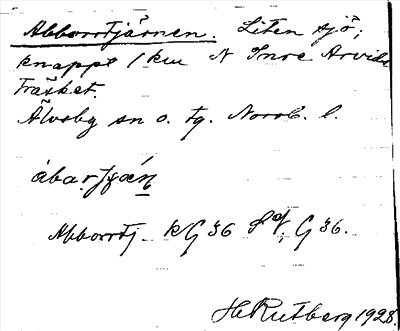 Abborrtjärnen. Liten sjö,
knappt 1 km N Inre Arvids
träsket.
Älvsby sn o. tg. Norrb. l.
Abborrtj. kG 36 G 36.
H. Rutberg 1928.